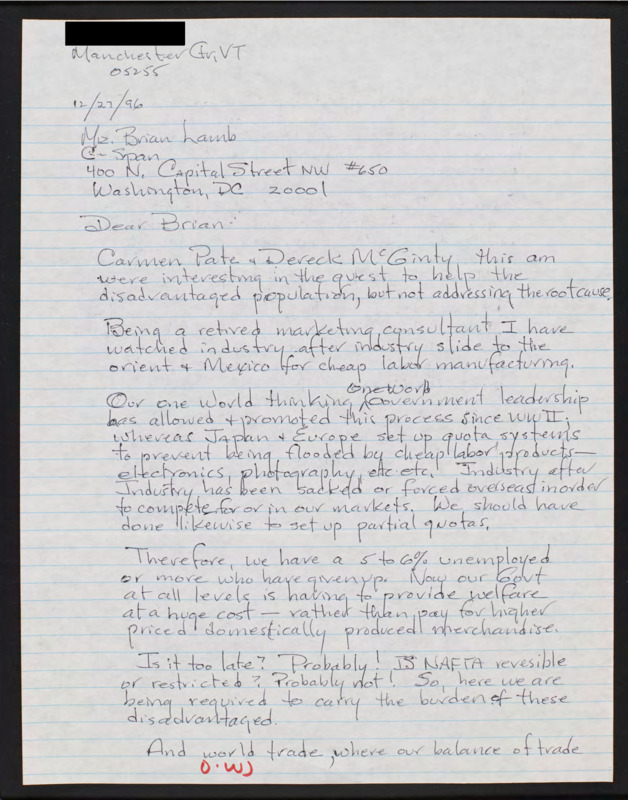 Manchester Ctr, VT
05255
12/27/96
Mr. Brian Lamb
C-Span
400 N. Capital Street NW #650
Washington, DC 20001
Dear Brian:
Carmen Pate & Dereck McGinty this am
were interesting in the quest to help the
disadvantaged population, but not addressing the root cause.
Being a retired marketing consultant I have
watched industry after industry slide to the
orient & Mexico for cheap labor manufacturing.
Our one world thinking, One World Government leadership
has allowed & promoted this process since WW II;
whereas Japan & Europe set up quota systems
to prevent being flooded by cheap labor products—
electronics, photography, etc etc. Industry after
Industry has been sacked or forced overseas in order
to compete for or in our markets. We should have
done likewise to set up partial quotas.
Therefore, we have a 5 to 6% unemployed
or more who have given up. Now our Govt
at all levels is having to provide welfare
at a huge cost — rather than pay for higher
priced domestically produced merchandise.
Is it too late? Probably! IS NAFTA revesible
or restricted? Probably not! So, here we are
being required to carry the burden of these
disadvantaged.
And world trade, where our balance of trade